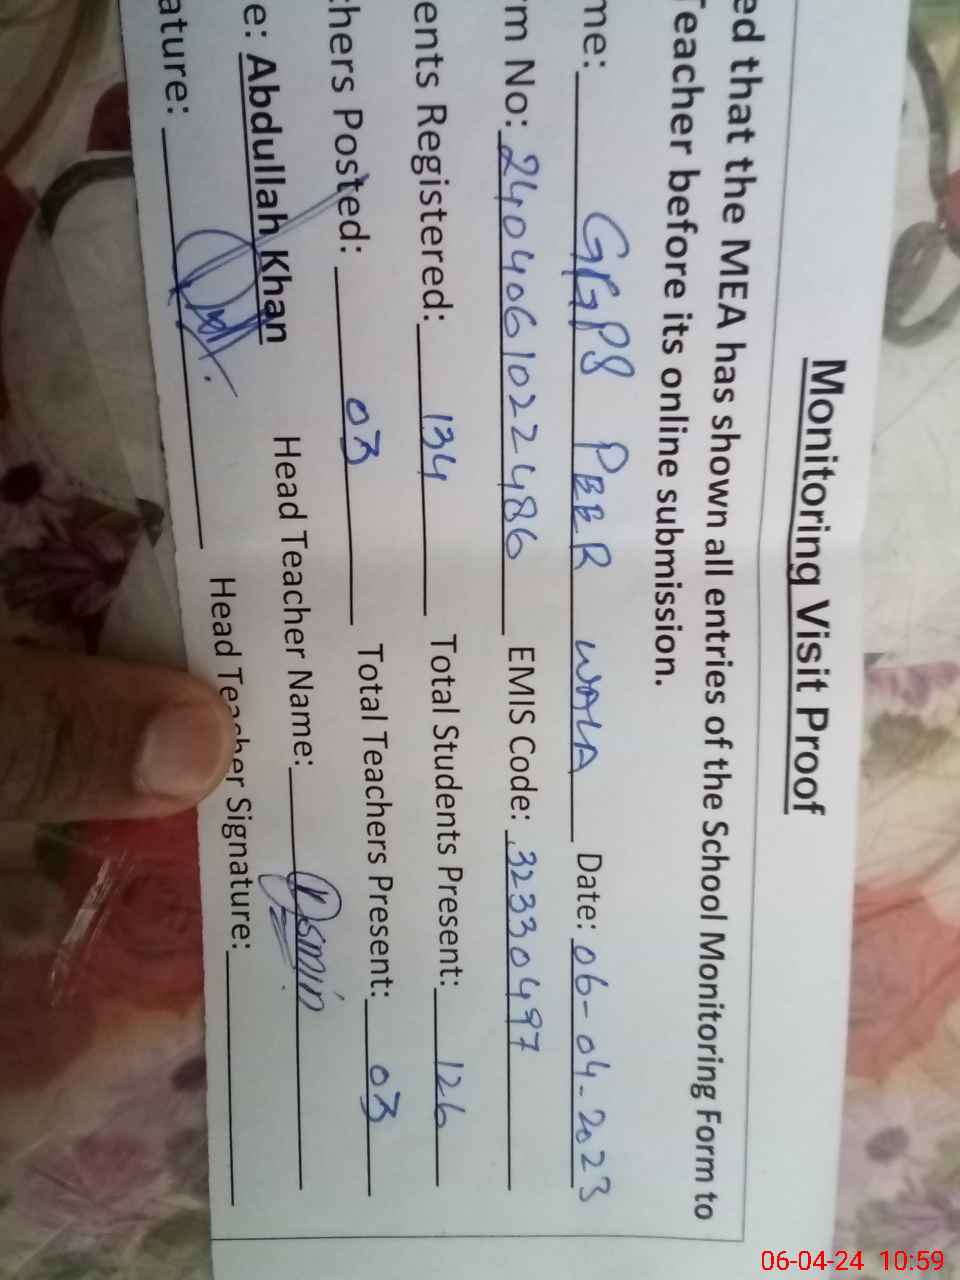 Monitoring Visit Proof
ed that the MEA has shown all entries of the School Monitoring Form to
Teacher before its online submission.
me: GGPS PEER WALA Date: 06-04-2023
rm No: 2404061022486 EMIS Code: 32330497
ents Registered: 134 Total Students Present: 126
hers Posted: 03 Total Teachers Present: 03
e: Abdullah Khan Head Teacher Name:
ature: Head Teacher Signature:
06-04-24 10:59